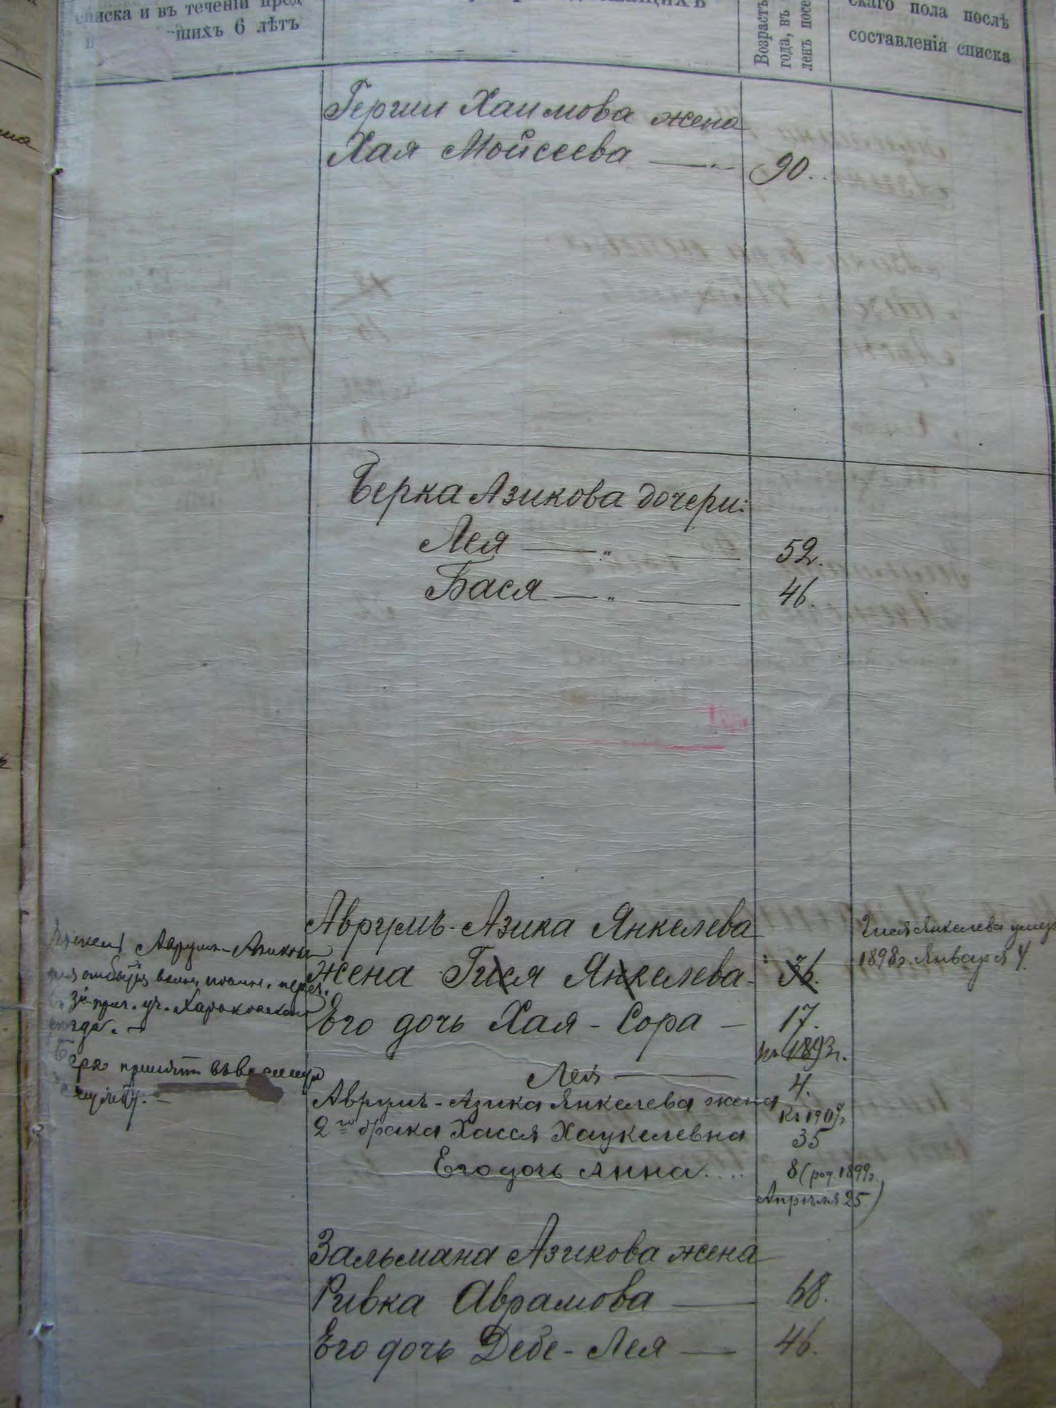 списка и въ теченіи пред
шихъ 6 лѣтъ
Возрастъ
года, въ
ленъ посе
скаго пола послѣ
составленія списка
Гершии Хаимова жена
Хая Мойсеева — „ — 90.
Берка Азикова дочери:
Лея — „ — 52.
Бася — „ — 46.
Аврумъ-Азика Янкелева
жена Гися Янкелева. 36.
Его дочь Хая-Сора — 17.
на 1893г.
Лея — 4.
Аврумъ-Азика Янкелева жена
Къ 1907г.
2го брака Хасся Хацкелевна 35
Его дочь Анна... 8 (род. 1899г.
Апрѣля 25)
Аврумъ-Азикъ
за прич. уч. Харьковскаго
принятъ въ военную
службу. —
Гися Янкелева умер
1898г. Января 4.
Зальмана Азикова жена
Ривка Аврамова — 68.
Его дочь Дебе-Лея — 46.